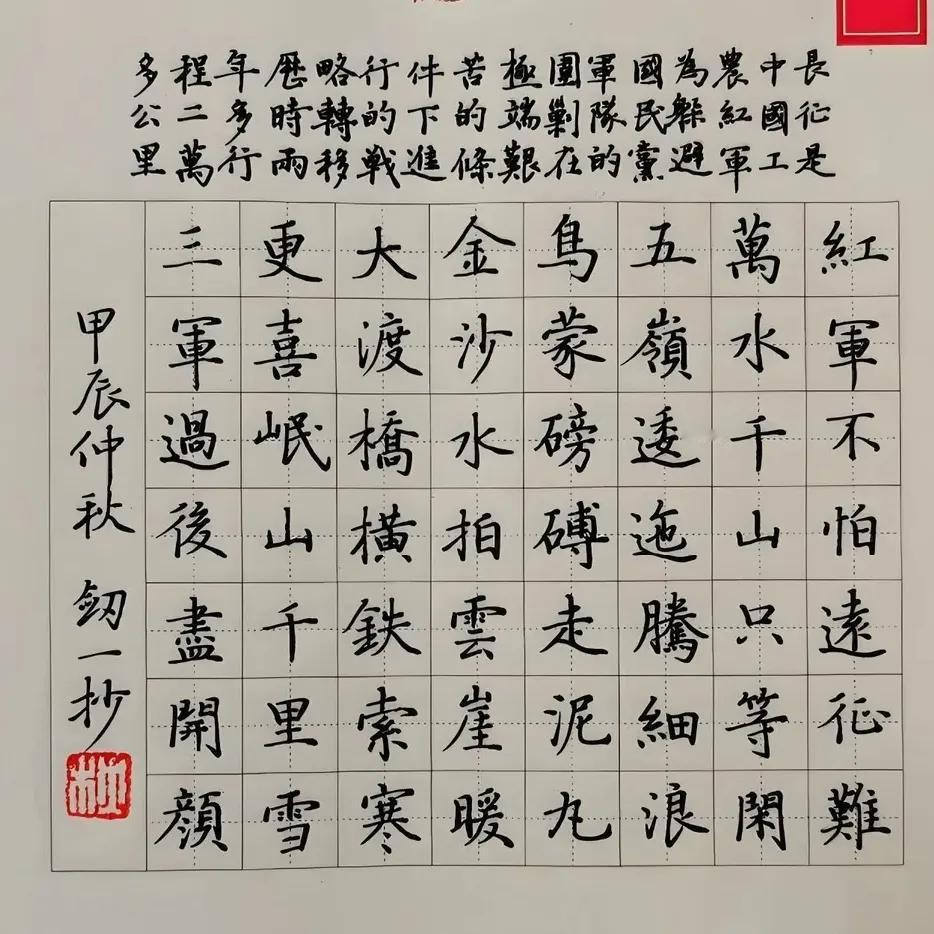 長征是
中國工
農紅軍
為躲避
國民黨
軍隊的
圍剿在
極端艱
苦的條
件下進
行的戰
略轉移
歷時兩
年多行
程二萬
多公里
紅軍不怕遠征難
萬水千山只等閑
五嶺逶迤騰細浪
烏蒙磅礴走泥丸
金沙水拍雲崖暖
大渡橋橫鉄索寒
更喜岷山千里雪
三軍過後盡開顏
甲辰仲秋 劒一抄
柳